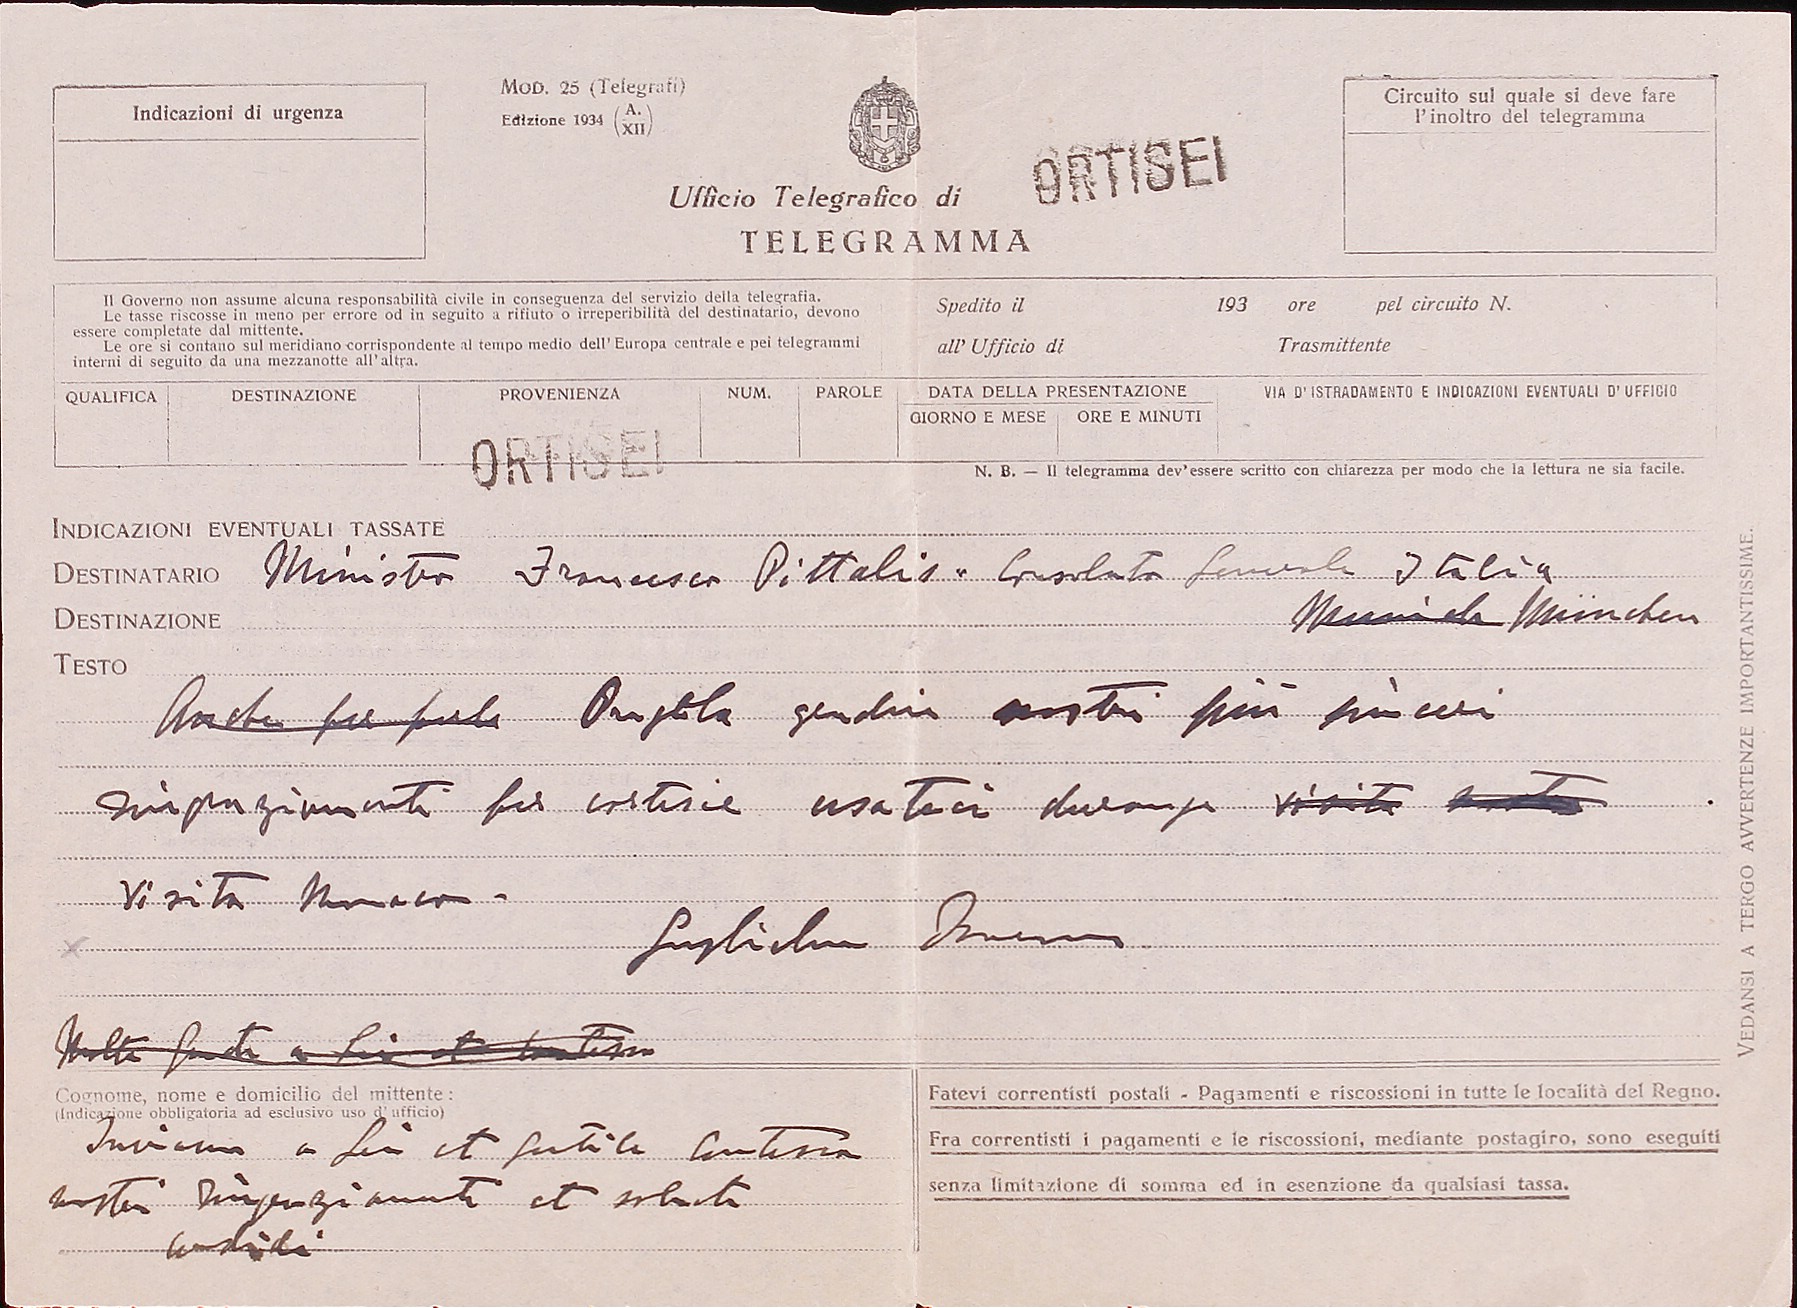 Indicazioni di urgenza
MOD. 25 (Telegrafi)
Edizione 1934 (A. XII)
Circuito sul quale si deve fare
l'inoltro del telegramma
ORTISEI
Ufficio Telegrafico di
TELEGRAMMA
Il Governo non assume alcuna responsabilità civile in conseguenza del servizio della telegrafia.
Le tasse riscosse in meno per errore od in seguito a rifiuto o irreperibilità del destinatario, devono
essere completate dal mittente.
Le ore si contano sul meridiano corrispondente al tempo medio dell'Europa centrale e pei telegrammi
interni di seguito da una mezzanotte all'altra.
Spedito il 193 ore pel circuito N.
all'Ufficio di Trasmittente
QUALIFICA DESTINAZIONE PROVENIENZA NUM. PAROLE DATA DELLA PRESENTAZIONE VIA D'ISTRADAMENTO E INDICAZIONI EVENTUALI D'UFFICIO
GIORNO E MESE ORE E MINUTI
ORTISEI
N. B. — Il telegramma dev'essere scritto con chiarezza per modo che la lettura ne sia facile.
INDICAZIONI EVENTUALI TASSATE
DESTINATARIO Ministro Francesco Pittalis - Consolato Generale Italia
DESTINAZIONE München
TESTO
gradire nostri più sinceri
ringraziamenti per cortesie usateci visita
visita Monaco -
Guglielmo
Molte a Lei et Contessa
Cognome, nome e domicilio del mittente:
(Indicazione obbligatoria ad esclusivo uso d'ufficio)
Inviamo a Lei et gentile Contessa
nostri ringraziamenti et saluti
cordiali
Fatevi correntisti postali - Pagamenti e riscossioni in tutte le località del Regno.
Fra correntisti i pagamenti e le riscossioni, mediante postagiro, sono eseguiti
senza limitazione di somma ed in esenzione da qualsiasi tassa.
VEDANSI A TERGO AVVERTENZE IMPORTANTISSIME.